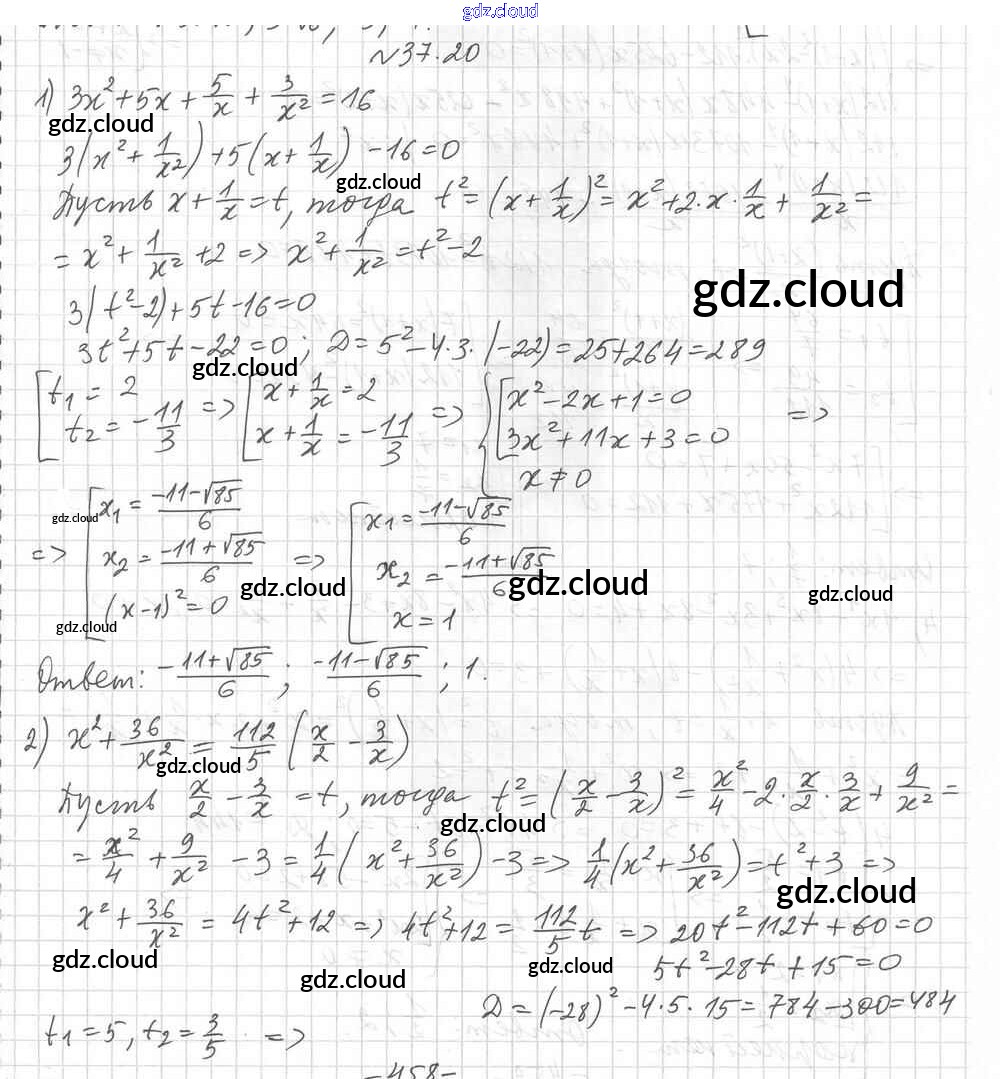 gdz.cloud
№37.20
1) 3x² + 5x + 5/x + 3/x² = 16
gdz.cloud
3(x² + 1/x²) + 5(x + 1/x) - 16 = 0
gdz.cloud
Пусть x + 1/x = t, тогда t² = (x + 1/x)² = x² + 2·x·1/x + 1/x² =
= x² + 1/x² + 2 => x² + 1/x² = t² - 2
gdz.cloud
3(t² - 2) + 5t - 16 = 0
3t² + 5t - 22 = 0; D = 5² - 4·3·(-22) = 25 + 264 = 289
gdz.cloud
[t₁ = 2 => [x + 1/x = 2 => {[x² - 2x + 1 = 0 =>
t₂ = -11/3 x + 1/x = -11/3 3x² + 11x + 3 = 0
x ≠ 0
=> [x₁ = (-11-√85)/6 => [x₁ = (-11-√85)/6
gdz.cloud
x₂ = (-11+√85)/6 x₂ = (-11+√85)/6
gdz.cloud gdz.cloud gdz.cloud
(x-1)² = 0 x = 1
gdz.cloud
Ответ: (-11+√85)/6; (-11-√85)/6; 1.
2) x² + 36/x² = 112/5 (x/2 - 3/x)
gdz.cloud
Пусть x/2 - 3/x = t, тогда t² = (x/2 - 3/x)² = x²/4 - 2·x/2·3/x + 9/x² =
gdz.cloud
= x²/4 + 9/x² - 3 = 1/4(x² + 36/x²) - 3 => 1/4(x² + 36/x²) = t² + 3 =>
gdz.cloud
x² + 36/x² = 4t² + 12 => 4t² + 12 = 112/5 t => 20t² - 112t + 60 = 0
gdz.cloud gdz.cloud gdz.cloud
5t² - 28t + 15 = 0
D = (-28)² - 4·5·15 = 784 - 300 = 484
t₁ = 5, t₂ = 3/5 =>
-458-